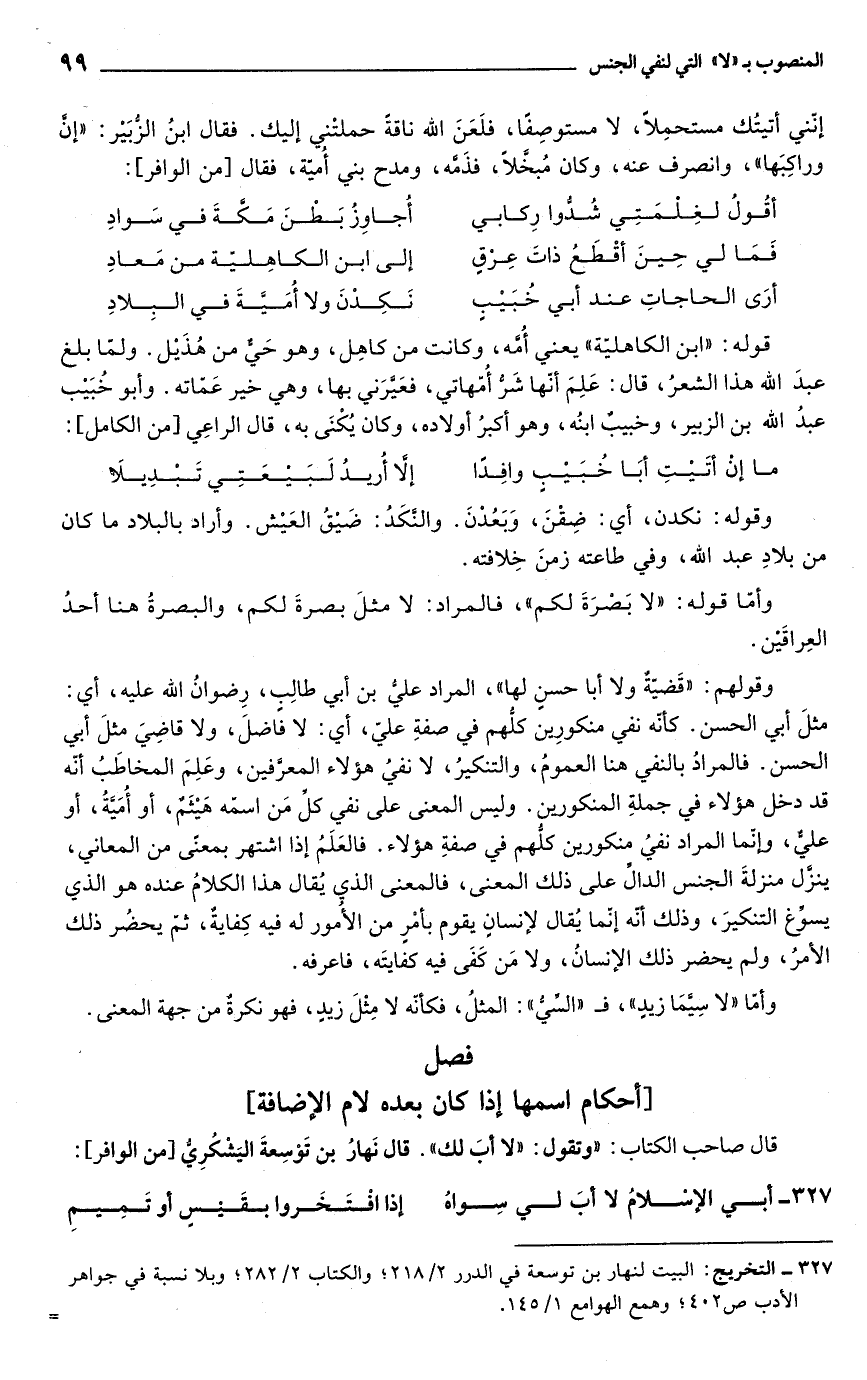 المنصوب بـ «لا» التي لنفي الجنس ٩٩
إنّني أتيتُك مستحمِلاً، لا مستوصِفًا، فلَعَنَ الله ناقةً حملتْني إليك. فقال ابنُ الزُّبَيْر: «إنَّ
وراكِبَها»، وانصرف عنه، وكان مُبخَّلاً، فذَمَّه، ومدح بني أُميّة، فقال [من الوافر]:
أقُولُ لغِلْمَتِي شُدُّوا رِكابي أُجاوِزُ بَطْنَ مَكَّةَ في سَوادِ
فَمَا لي حِينَ أقْطَعُ ذاتَ عِرْقٍ إلى ابن الكاهليّة من مَعادِ
أرَى الحاجاتِ عند أبي خُبَيْبٍ نَكِدْنَ ولا أُمَيَّةَ في البِلادِ
قوله: «ابن الكاهليّة» يعني أُمَّه، وكانت من كاهِل، وهو حَيٌّ من هُذَيْل. ولمّا بلغ
عبدَ الله هذا الشعرُ، قال: عَلِمَ أنّها شَرُّ أُمّهاتي، فعَيَّرَني بها، وهي خير عَمّاته. وأبو خُبَيْب
عبدُ الله بن الزبير، وخبيبٌ ابنُه، وهو أكبرُ أولاده، وكان يُكْنَى به، قال الراعِي [من الكامل]:
ما إنْ أتَيْتِ أبَا خُبَيْبٍ وافِدًا إلَّا أُريدُ لبَيْعَتِي تَبْدِيلَا
وقوله: نكدن، أي: ضِقْنَ، وَبَعُدْنَ. والنَّكَدُ: ضَيْقُ العَيْش. وأراد بالبلاد ما كان
من بلادِ عبد الله، وفي طاعته زمنَ خِلافته.
وأمّا قوله: «لا بَصْرَةَ لكم»، فالمراد: لا مثلَ بصرةَ لكم، والبصرةُ هنا أحدُ
العِراقَيْن.
وقولهم: «قَضيّةٌ ولا أبا حسنٍ لها»، المراد عليُّ بن أبي طالِبٍ، رِضوانُ الله عليه، أي:
مثلَ أبي الحسن. كأنّه نفي منكورِين كلُّهم في صفةِ عليّ، أي: لا فاضلَ، ولا قاضِيَ مثلَ أبي
الحسن. فالمرادُ بالنفي هنا العمومُ، والتنكيرُ، لا نفيُ هؤلاء المعرَّفين، وعَلِمَ المخاطَبُ أنّه
قد دخل هؤلاء في جملةِ المنكورين. وليس المعنى على نفي كلِّ مَن اسمُه هَيْثَمٌ، أو أُمَيَّةُ، أو
عليٌّ، وإنّما المراد نفيُ منكورين كلُّهم في صفةِ هؤلاء. فالعَلَمُ إذا اشتهر بمعنًى من المعاني،
ينزَّل منزلةَ الجنس الدالِّ على ذلك المعنى، فالمعنى الذي يُقال هذا الكلامُ عنده هو الذي
يسوِّغ التنكيرَ، وذلك أنّه إنّما يُقال لإنسانٍ يقوم بأمْرٍ من الأُمور له فيه كِفايةٌ، ثمّ يحضُر ذلك
الأمرُ، ولم يحضر ذلك الإنسانُ، ولا مَن كَفَى فيه كفايتَه، فاعرفه.
وأمّا «لا سِيَّمَا زيدٍ»، فـ «السِّيُّ»: المثلُ، فكأنّه لا مِثْلَ زيدٍ، فهو نكرةٌ من جهة المعنى.
فصل
[أحكام اسمها إذا كان بعده لام الإضافة]
قال صاحب الكتاب: «وتقول: «لا أبَ لك». قال نَهارُ بن تَوْسِعةَ اليَشْكُرِيُّ [من الوافر]:
٣٢٧ـ أبي الإسْلامُ لا أبَ لي سِواهُ إذا افْتَخَروا بقَيْسٍ أو تَمِيمِ
٣٢٧ ـ التخريج: البيت لنهار بن توسعة في الدرر ٢/ ٢١٨؛ والكتاب ٢/ ٢٨٢؛ وبلا نسبة في جواهر
الأدب ص٤٠٢؛ وهمع الهوامع ١/ ١٤٥.
=